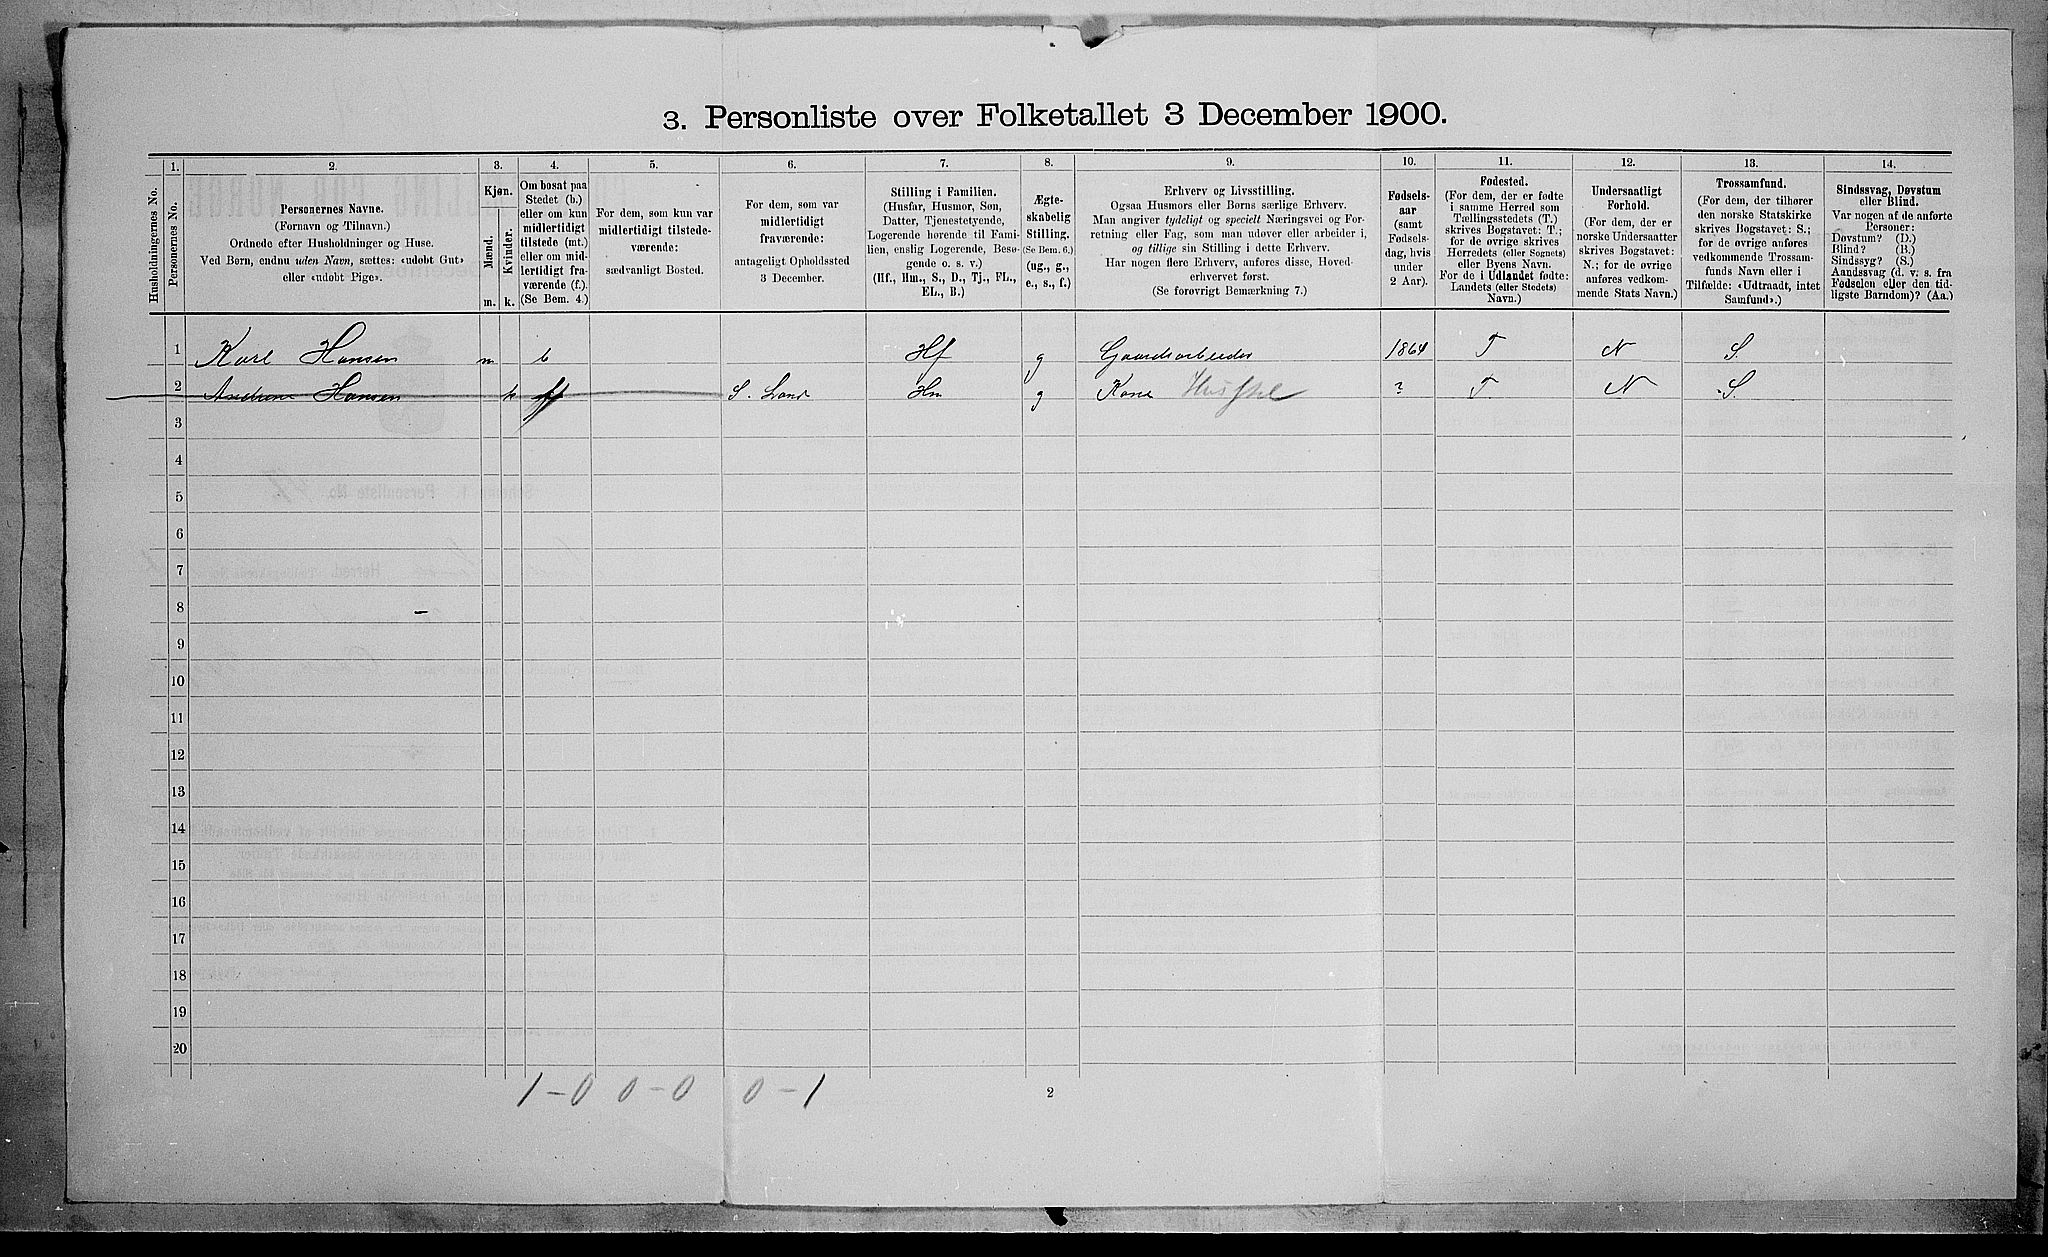 3. Personliste over Folketallet 3 December 1900.
1. 2. 3. 4. 5. 6. 7. 8. 9. 10. 11. 12. 13. 14.
Husholdningernes No.
Personernes No.
Personernes Navne.
(Fornavn og Tilnavn.)
Ordnede efter Husholdninger og Huse.
Ved Børn, endnu uden Navn, sættes: «udøbt Gut»
eller «udøbt Pige».
Kjøn.
Mænd.
Kvinder.
m. k.
Om bosat paa
Stedet (b.)
eller om kun
midlertidigt
tilstede (mt.)
eller om mid-
lertidigt fra-
værende (f.).
(Se Bem. 4.)
For dem, som kun var
midlertidigt tilstede-
værende:
sædvanligt Bosted.
For dem, som var
midlertidigt
fraværende:
antageligt Opholdssted
3 December.
Stilling i Familien.
(Husfar, Husmor, Søn,
Datter, Tjenestetyende,
Logerende hørende til Fami-
lien, enslig Logerende, Besø-
gende o. s. v.)
(Hf., Hm., S., D., Tj., FL.,
EL., B.)
Ægte-
skabelig
Stilling.
(Se Bem. 6.)
(ug., g.,
e., s., f.)
Erhverv og Livsstilling.
Ogsaa Husmors eller Børns særlige Erhverv.
Man angiver tydeligt og specielt Næringsvei og For-
retning eller Fag, som man udøver eller arbeider i,
og tillige sin Stilling i dette Erhverv.
Har nogen flere Erhverv, anføres disse, Hoved-
erhvervet først.
(Se forøvrigt Bemærkning 7.)
Fødsels-
aar
(samt
Fødsels-
dag, hvis
under
2 Aar).
Fødested.
(For dem, der er fødte
i samme Herred som
Tællingsstedets (T.)
skrives Bogstavet: T.;
for de øvrige skrives
Herredets (eller Sognets)
eller Byens Navn.
For de i Udlandet fødte:
Landets (eller Stedets)
Navn.)
Undersaatligt
Forhold.
(For dem, der er
norske Undersaatter
skrives Bogstavet:
N.; for de øvrige
anføres vedkom-
mende Stats Navn.)
Trossamfund.
(For dem, der tilhører
den norske Statskirke
skrives Bogstavet: S.;
for de øvrige anføres
vedkommende Trossam-
funds Navn eller i
Tilfælde: «Udtraadt, intet
Samfund».)
Sindssvag, Døvstum
eller Blind.
Var nogen af de anførte
Personer:
Døvstum? (D.)
Blind? (B.)
Sindssyg? (S.)
Aandssvag (d. v. s. fra
Fødselen eller den tid-
ligste Barndom)? (Aa.)
1 Karl Hansen m b Hf g Gaardsarbeider 1864 T N S.
2 Andrene Hansen k f S. Land Hm g Kone ? T N S
3
4
5
6
7
8
9
10
11
12
13
14
15
16
17
18
19
20
1-0 0-0 0-1
2